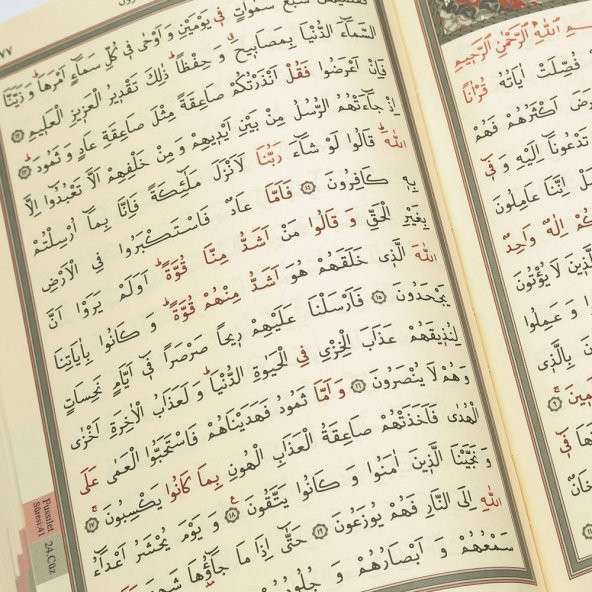 اللهِ الرَّحْمٰنِ الرَّحِيمِ
فُصِّلَتْ اٰيَاتُهُ قُرْاٰنًا
اَكْثَرُهُمْ فَهُمْ
تَدْعُونَٓا اِلَيْهِ وَفٖٓي
اِنَّنَا عَامِلُونَ
اِلٰهٌ وَاحِدٌ
الَّذٖينَ لَا يُؤْتُونَ
وَعَمِلُوا
بِالَّذٖي
٩
فٖٓي
٧٧
سَمٰوَاتٍ فٖي يَوْمَيْنِ وَاَوْحٰى فٖي كُلِّ سَمَٓاءٍ اَمْرَهَا وَزَيَّنَّا
السَّمَٓاءَ الدُّنْيَا بِمَصَابٖيحَ وَحِفْظًا ذٰلِكَ تَقْدٖيرُ الْعَزٖيزِ الْعَلٖيمِ ١٢
فَاِنْ اَعْرَضُوا فَقُلْ اَنْذَرْتُكُمْ صَاعِقَةً مِثْلَ صَاعِقَةِ عَادٍ وَثَمُودَ ١٣
اِذْ جَٓاءَتْهُمُ الرُّسُلُ مِنْ بَيْنِ اَيْدٖيهِمْ وَمِنْ خَلْفِهِمْ اَلَّا تَعْبُدُٓوا اِلَّا
اللهَ قَالُوا لَوْ شَٓاءَ رَبُّنَا لَاَنْزَلَ مَلٰٓئِكَةً فَاِنَّا بِمَٓا اُرْسِلْتُمْ
بِهٖ كَافِرُونَ ١٤ فَاَمَّا عَادٌ فَاسْتَكْبَرُوا فِي الْاَرْضِ
بِغَيْرِ الْحَقِّ وَقَالُوا مَنْ اَشَدُّ مِنَّا قُوَّةً اَوَلَمْ يَرَوْا اَنَّ
اللهَ الَّذٖي خَلَقَهُمْ هُوَ اَشَدُّ مِنْهُمْ قُوَّةً وَكَانُوا بِاٰيَاتِنَا
يَجْحَدُونَ ١٥ فَاَرْسَلْنَا عَلَيْهِمْ رٖيحًا صَرْصَرًا فٖٓي اَيَّامٍ نَحِسَاتٍ
لِنُذٖيقَهُمْ عَذَابَ الْخِزْيِ فِي الْحَيٰوةِ الدُّنْيَا وَلَعَذَابُ الْاٰخِرَةِ اَخْزٰى
وَهُمْ لَا يُنْصَرُونَ ١٦ وَاَمَّا ثَمُودُ فَهَدَيْنَاهُمْ فَاسْتَحَبُّوا الْعَمٰى عَلَى
الْهُدٰى فَاَخَذَتْهُمْ صَاعِقَةُ الْعَذَابِ الْهُونِ بِمَا كَانُوا يَكْسِبُونَ ١٧
وَنَجَّيْنَا الَّذٖينَ اٰمَنُوا وَكَانُوا يَتَّقُونَ ١٨ وَيَوْمَ يُحْشَرُ اَعْدَٓاءُ
اللهِ اِلَى النَّارِ فَهُمْ يُوزَعُونَ ١٩ حَتّٰٓى اِذَا مَا جَٓاؤُ۫هَا شَهِدَ
سَمْعُهُمْ وَاَبْصَارُهُمْ وَجُلُودُهُمْ
Fussilet Sûresi:41
24.Cüz